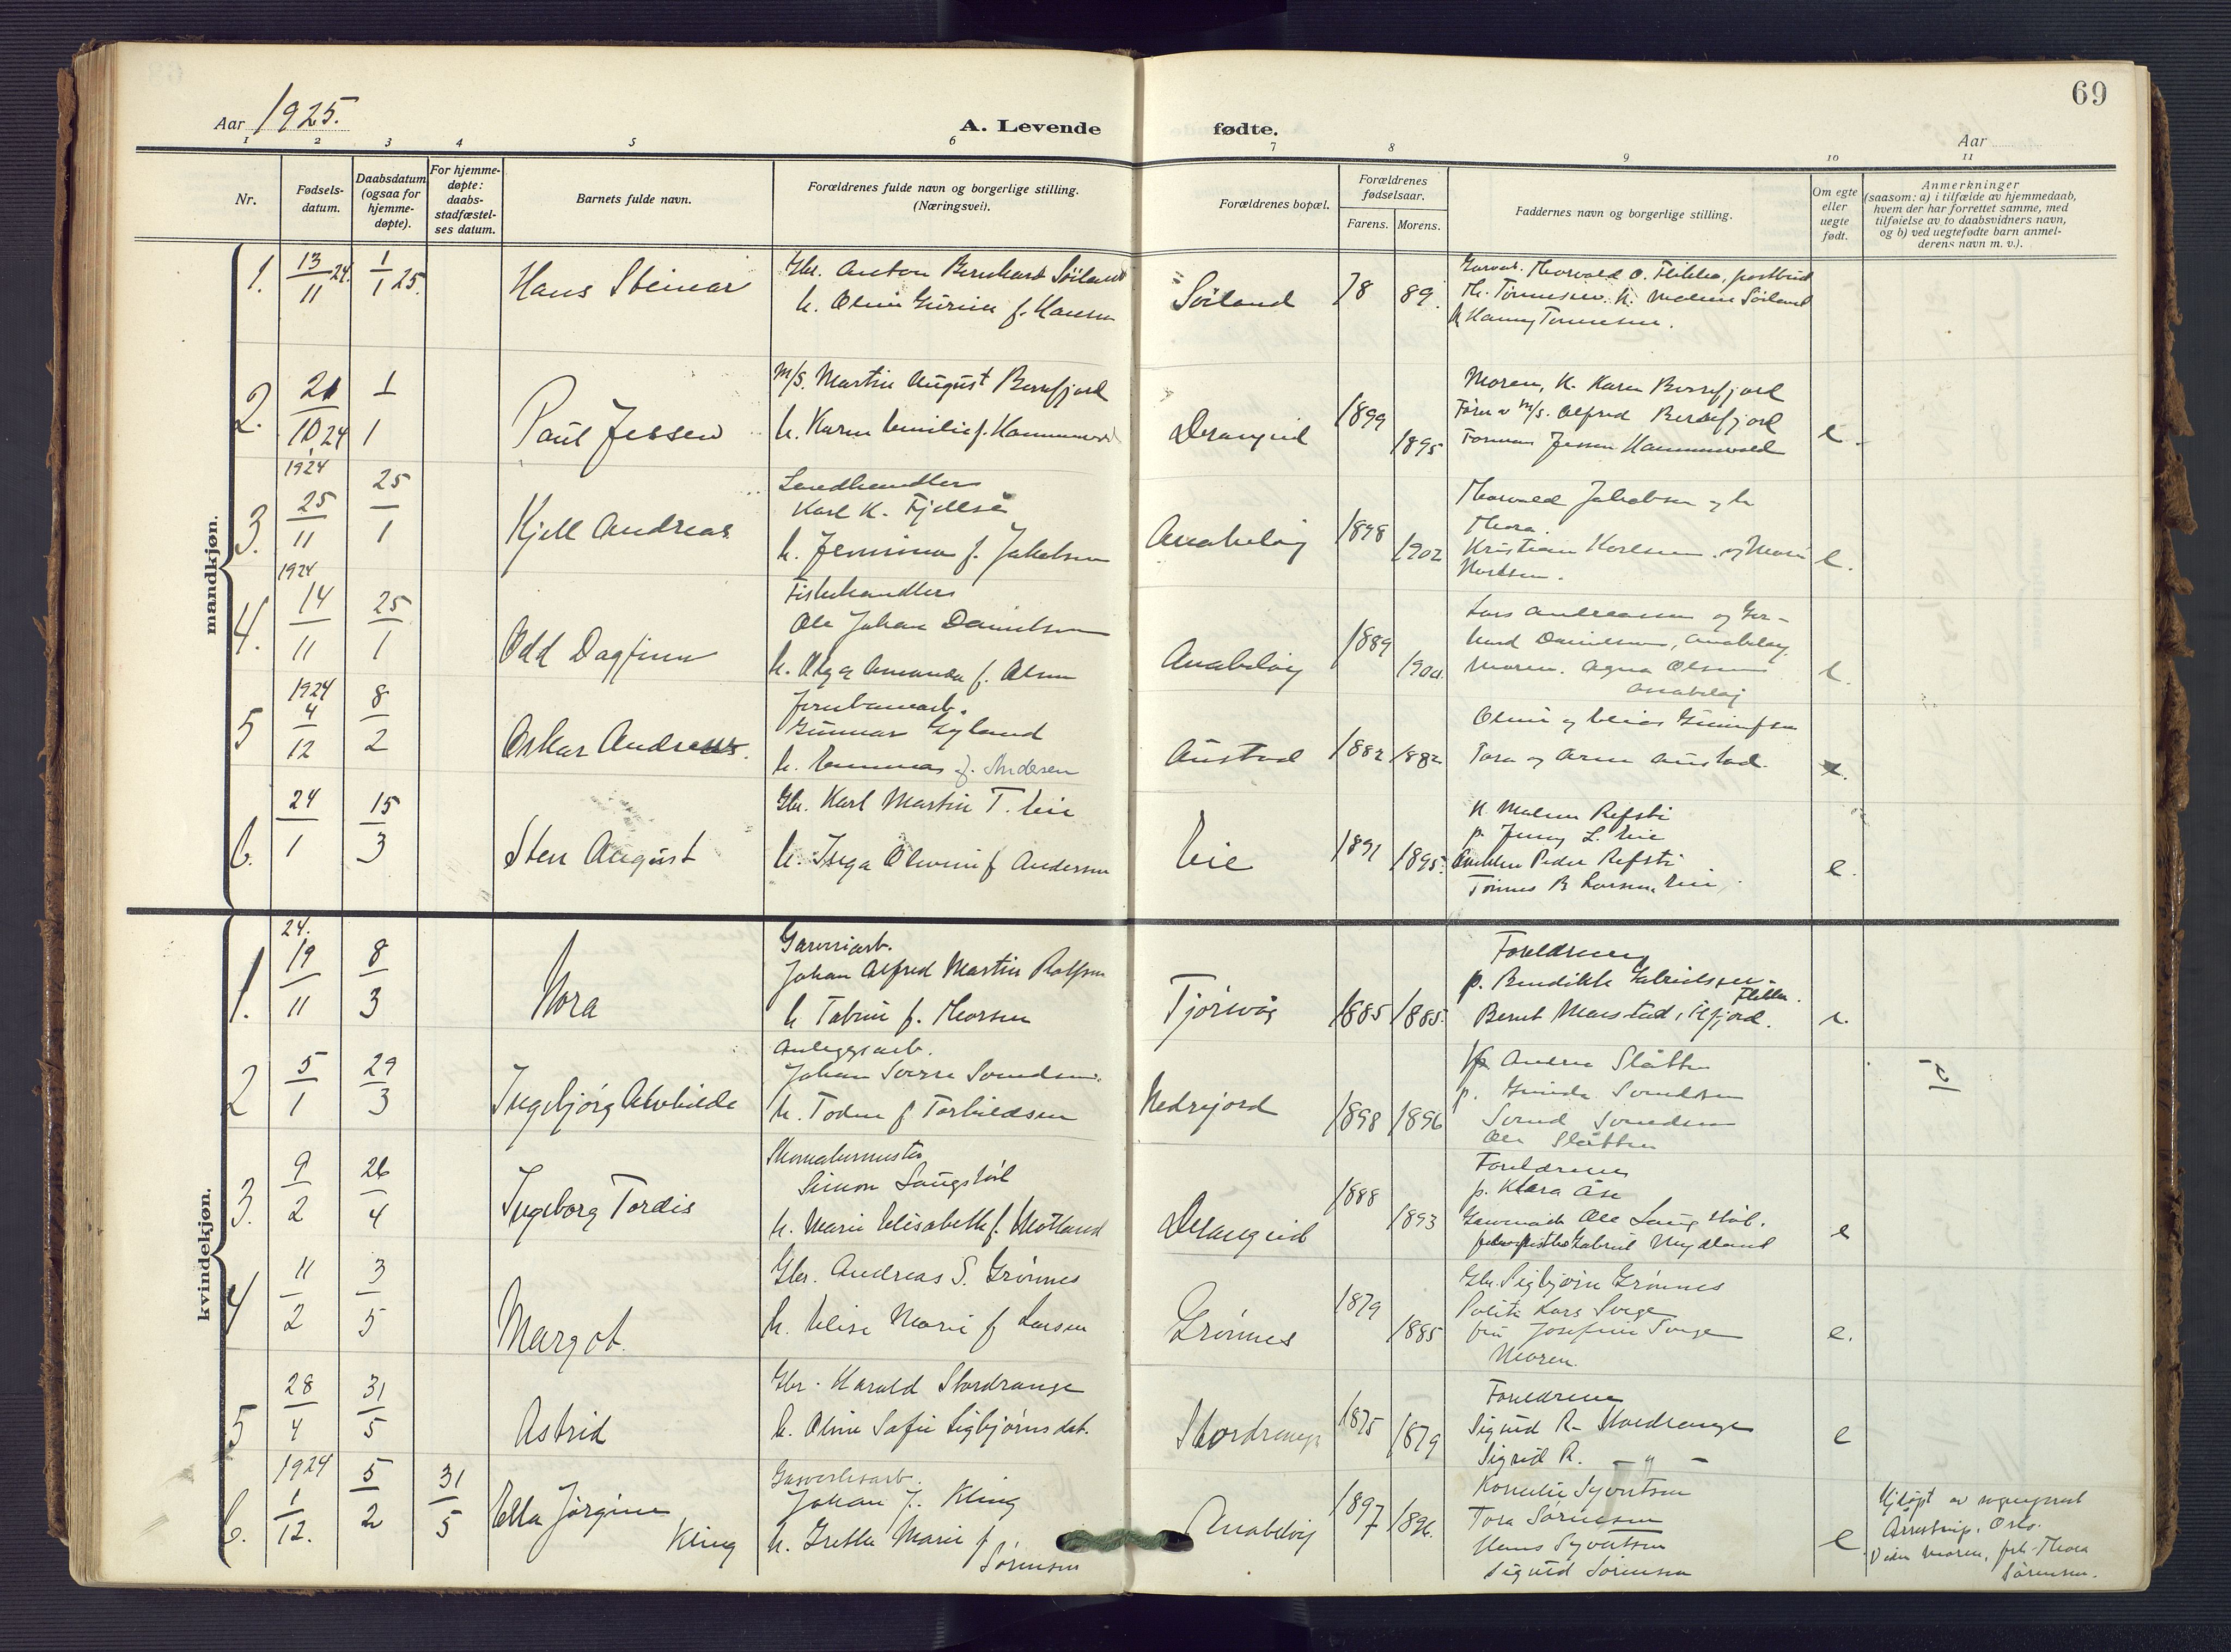 69
Aar 1925.
A. Levende fødte.
Aar
1 2 3 4 5 6 7 8 9 10 11
Nr.
Fødsels-
datum.
Daabsdatum
(ogsaa for
hjemme-
døpte).
For hjemme-
døpte:
daabs-
stadfæstel-
ses datum.
Barnets fulde navn.
Forældrenes fulde navn og borgerlige stilling.
(Næringsvei).
Forældrenes bopæl.
Forældrenes
fødselsaar.
Farens. Morens.
Faddernes navn og borgerlige stilling.
Om egte
eller
uegte
født.
Anmerkninger
(saasom: a) i tilfælde av hjemmedaab,
hvem der har forrettet samme, med
tilføielse av to daabsvidners navn,
og b) ved uegtefødte barn anmel-
derens navn m. v.).
mandkjøn.
1. 13/11 24. 1/1 25. Hans Steinar
Gbr. Anton Bernhard Söiland
h. f. Hansen
Söiland 78 89.
Thorvald O. Flikka, postbud
Th. Tønnesen. K. Malene Söiland
Tønnesen.
2. 21/10 24 1/1 Paul Jessen
m/s. Martin August Berrefjord
h. Karen Emilie f.
Drangeid 1899 1895 e.
Moren, K. Karen Berrefjord
m/s. Alfred Berrefjord
Jessen
3. 1924 25/11 25/1 Kjell Andreas
Landhandler
Karl K. Fjellså
h. Jemima f. Jakobsen
Anabeløy 1898 1902 e.
Thorvald Jakobsen og h.
Thora
Kristian Karlsen og
4. 1924 14/11 25/1 Odd Dagfinn
Fiskehandler
Ole Johan Danielsen
h. Olga Amanda f. Olsen
Anabeløy 1889
Lars Andreassen og Ger-
hard Danielsen, Anabeløy
Moren. Agna Olsen
Anabeløy
5 1924 4/12 8/2 Oskar Andreas.
Jernbanearb.
Gunnar Gyland
h. f. Andersen
Austad 1882 1882
Tora og Arne Austad.
6. 24/1 15/3 Sten August
Gbr. Karl Martin T. Eie
h. Inga Olivine f Andersen
Eie 1891 1895. e.
K. Malene Refsti
p. Jenny L. Eie
Peder Refsti
Tønnes B Larsen, Eie
kvindekjøn.
1. 24. 19/11 8/3 Nora
Garveriarb.
Johan Alfred Martin Rolfsen
h Tobine f. Thorsen
Tjörsvåg 1885 1885.
Foreldrene
p. Bendikte Gabrielsen
Flikka.
Bernt
2 5/1 29/3 Ingebjørg Alvhilde
Anleggsarb.
Johan Sverre Svendsen.
h. Todne f Torkildsen
Nedrejord 1898 1896
Andrea Slåtten
p. Svendsen
Svend Svendsen
Ole Slåtten
3. 9/2 26/4 Ingeborg Tordis
Skomakermester
Simon Laugstöl
h. Marie Elisabeth f. Motland
Drangeid 1888 1893 e
Foreldrene
p. Klara Åse
Ole Laugstöl.
Gabriel Nydland
4 11/2 3/5 Margot
Gbr. Andreas S. Grønnes
h. Elise Marie f Larsen
Grønnes 1879 1885 e.
Gbr. Sigbjørn Grønnes
Politi Lars Svege
fru Josefine Svege
Moren.
5 28/4 31/5 Astrid
Gbr. Harald Stordrange
h. Oline Sofie Sigbjørnsdat.
Stordrange 1875 1879 e
Foreldrene
Sigurd R. Stordrange
Sigrid R. — „ —
6. 1924 1/12. 5/2 31/5 Ella Jørgine
Kling
Gasverksarb.
Johan J. Kling
h. Grethe Marie f
Sørensen
Anabeløy 1897 1896. e
Kornelie Syvertsen
Tora Sørensen
Hans Syvertsen
Sigurd Sørensen
Hj.døpt av sogneprest
Oslo.
Moren, frk. Thora
Sørensen.